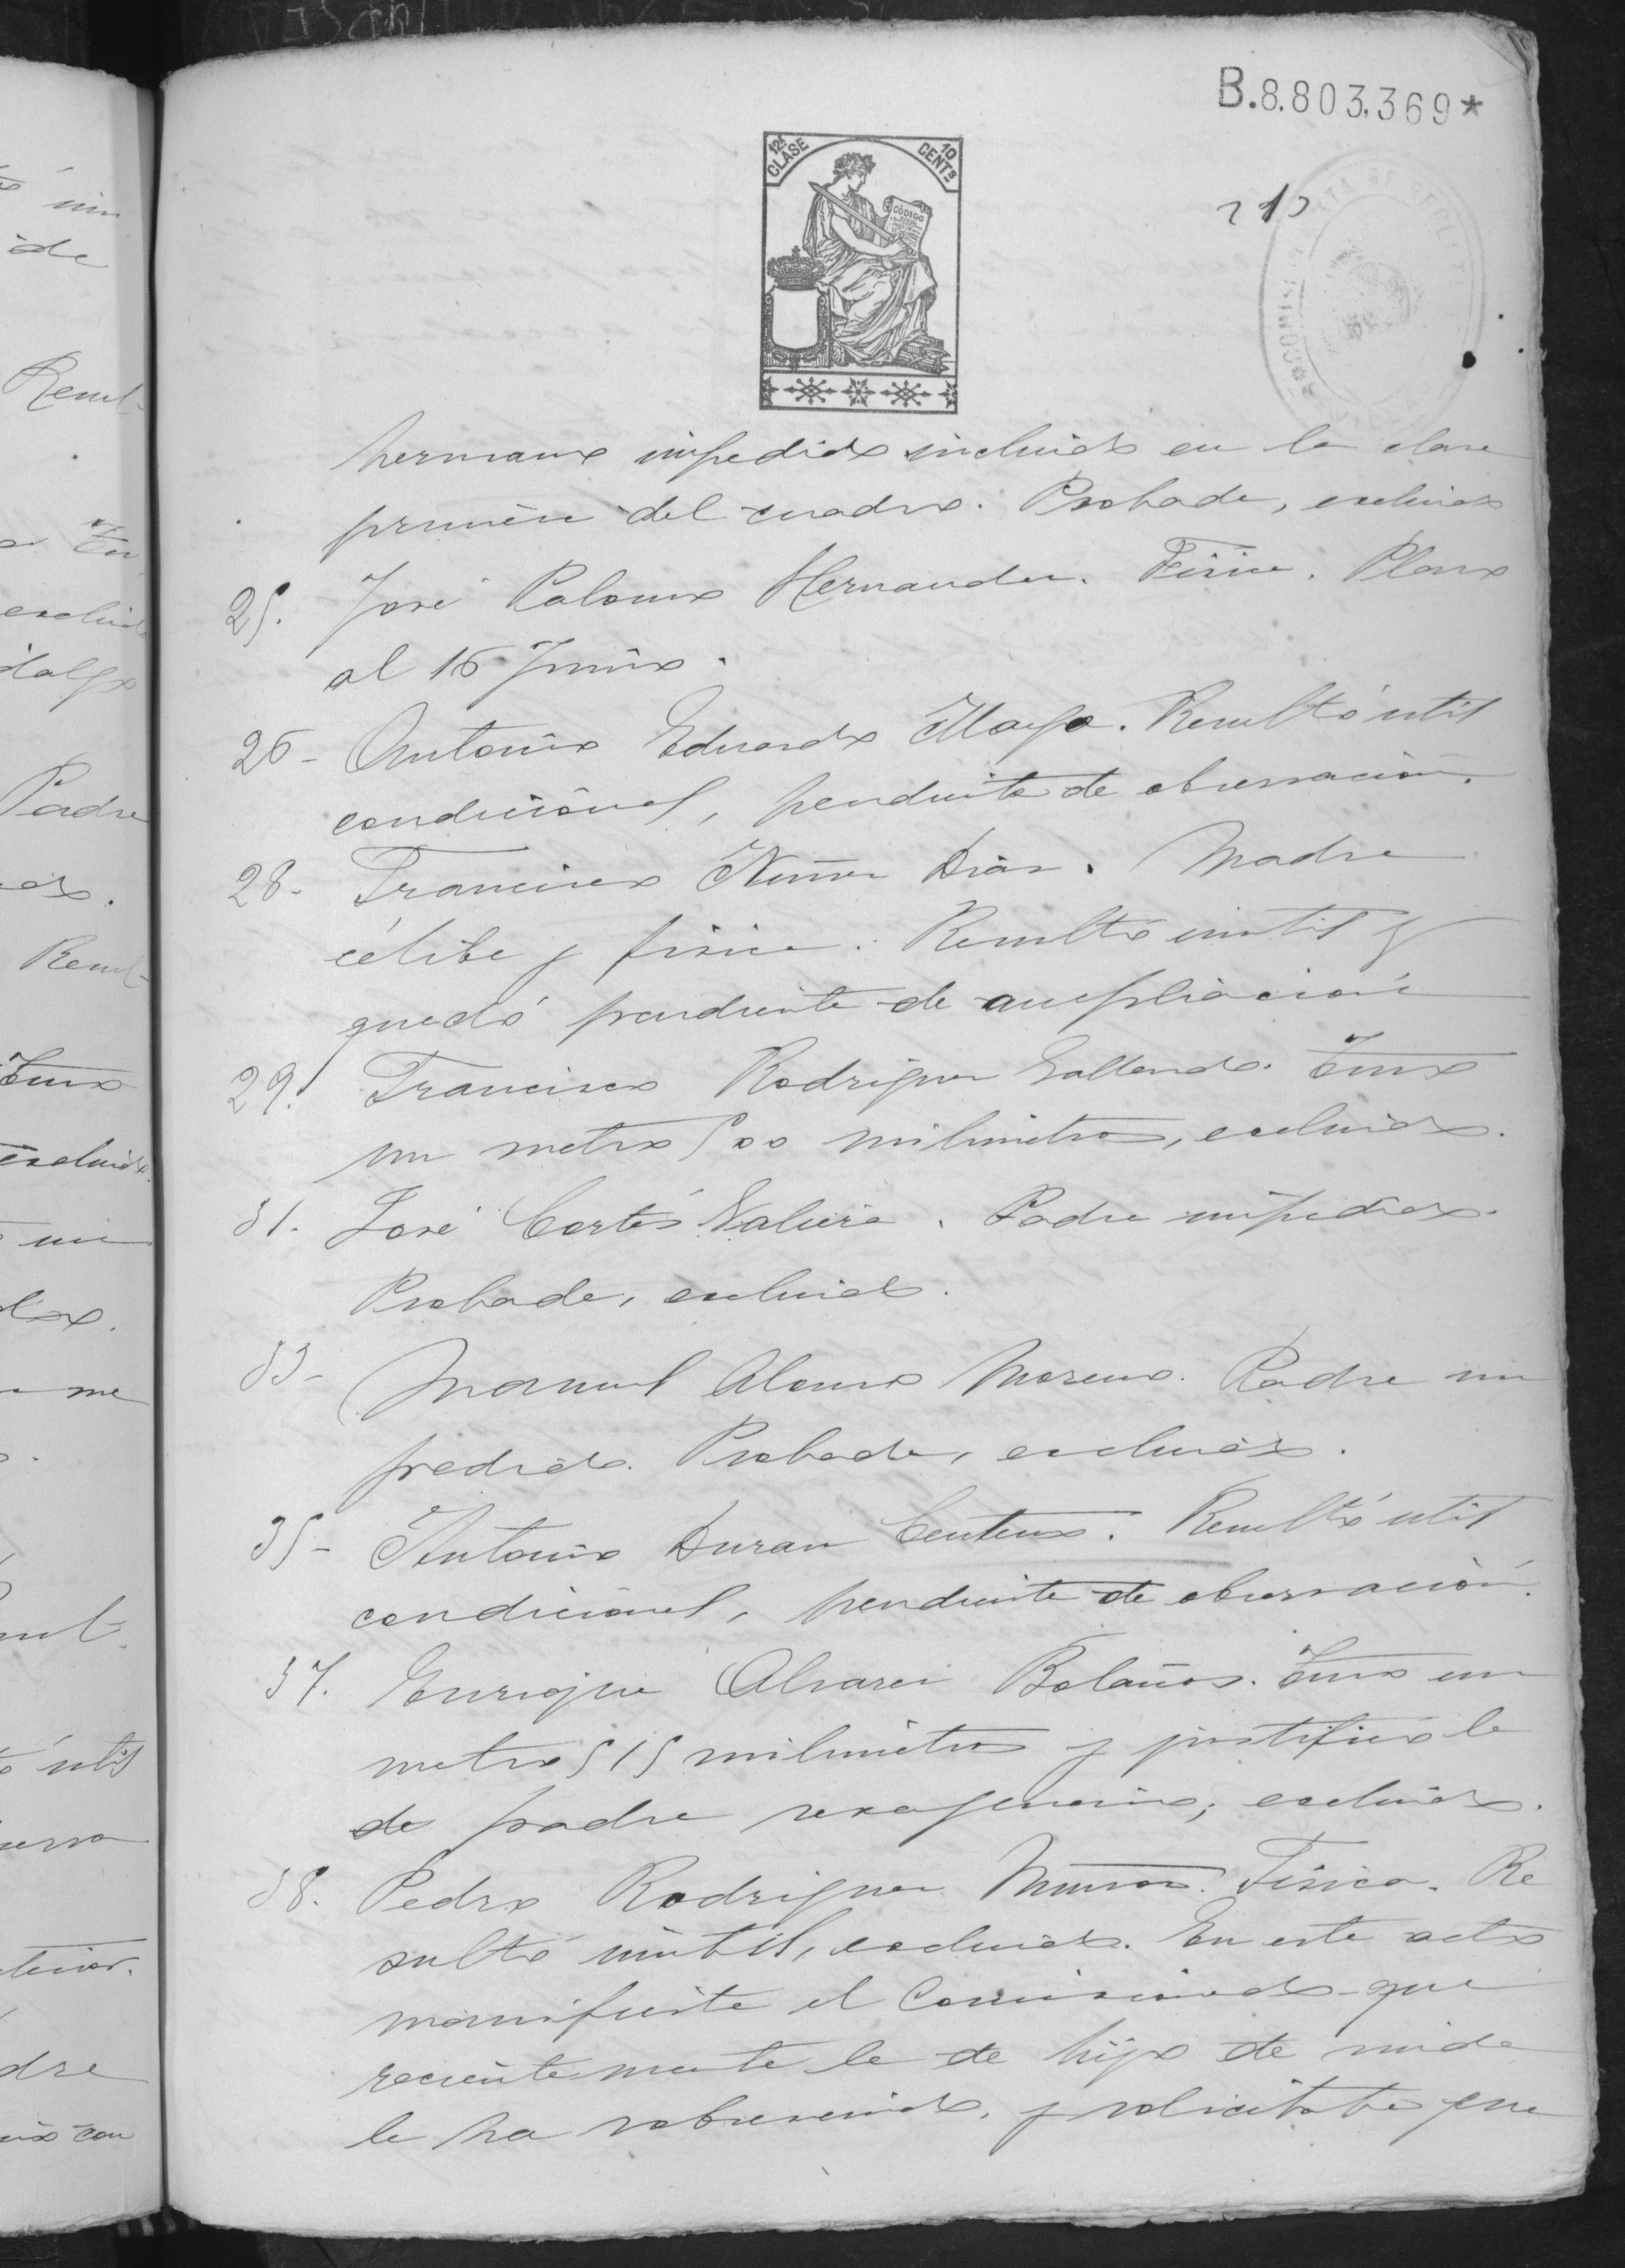 B.8.803.369*
12ª CLASE
10 CENTS
CÓDIGO
210
hermano impedido incluido en la clase
primera del cuadro. Probada, excluido
25. José Palomo Hernandez. Física. Plazo
al 16 Junio.
26- Antonio Eduardo Maya. Resultó util
condicional, pendiente de observación.
28- Francisco Nuñez Diaz. Madre
célibe y física. Resultó inutil y
quedó pendiente de ampliación
29. Francisco Rodriguez Gallardo. Tuvo
un metro 500 milimetros, excluido.
31. José Cortés Valiera. Padre impedido.
Probada, excluido.
33- Manuel Alonso Moreno. Padre im
pedido. Probada, excluido.
35- Antonio Duran Centeno. Resultó util
condicional, pendiente de observación.
37. Enrique Alvarez Bolaños. Tuvo un
metro 515 milimetros y justificó la
de padre sexagenario; excluido.
38. Pedro Rodriguez Munoz. Física. Re
sultó inutil, excluido. En este acto
manifiesta el Comisionado que
recientemente la de hijo de viuda
le ha sobrevenido, y solicitaba que